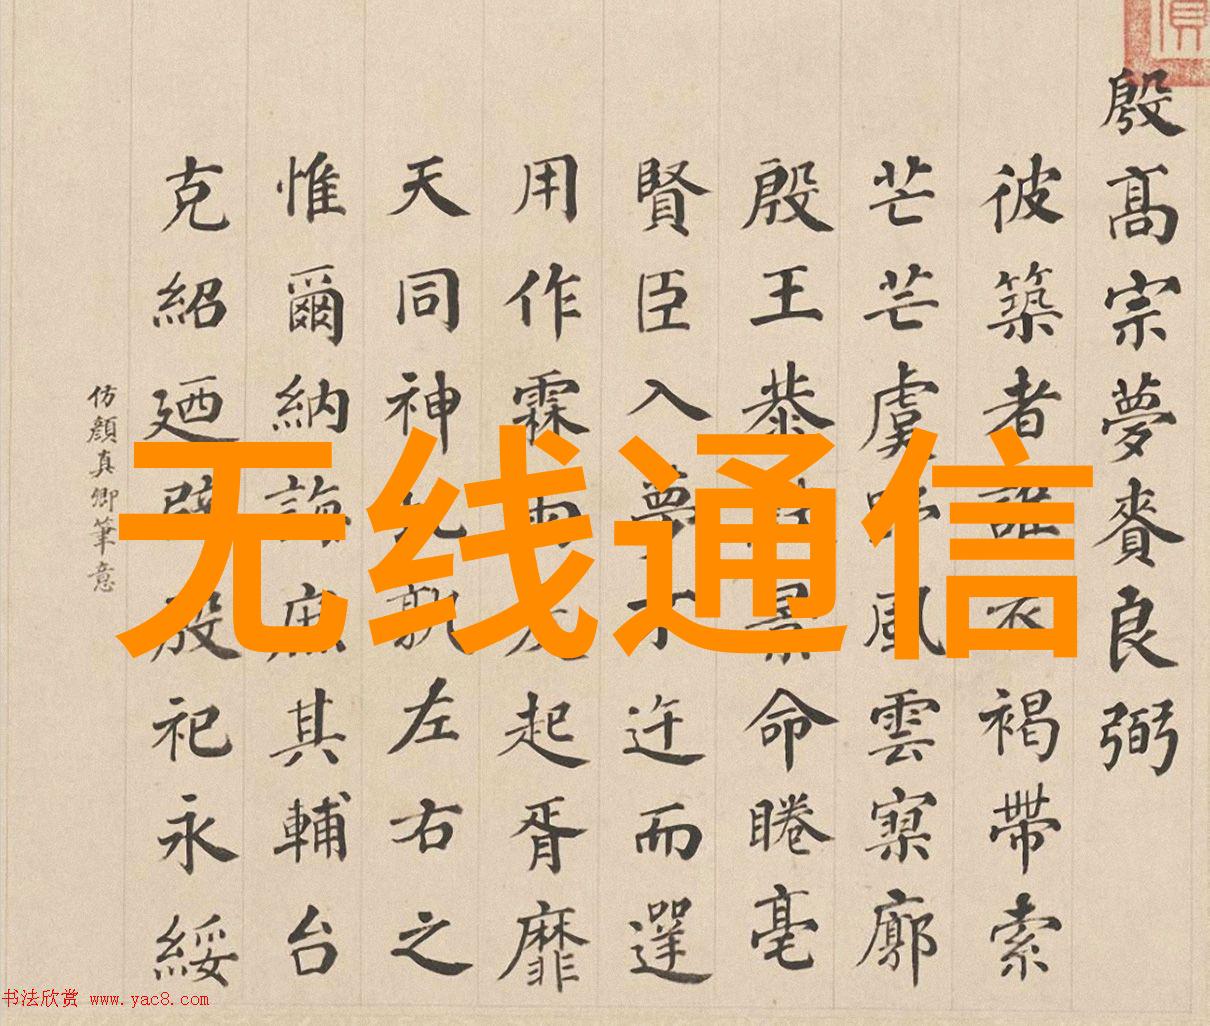 殷髙宗夢賚良弼
彼築者誰褐帶索
芒芒虞風雲寥廓
殷王恭景命睠亳
賢臣入夢迕而遻
用作霖雨起胥靡
天同神孰左右之
惟爾納誨庶其輔台
克紹廼辟殷祀永綏
仿顏真卿筆意
无线通信
书法欣赏 www.yac8.com